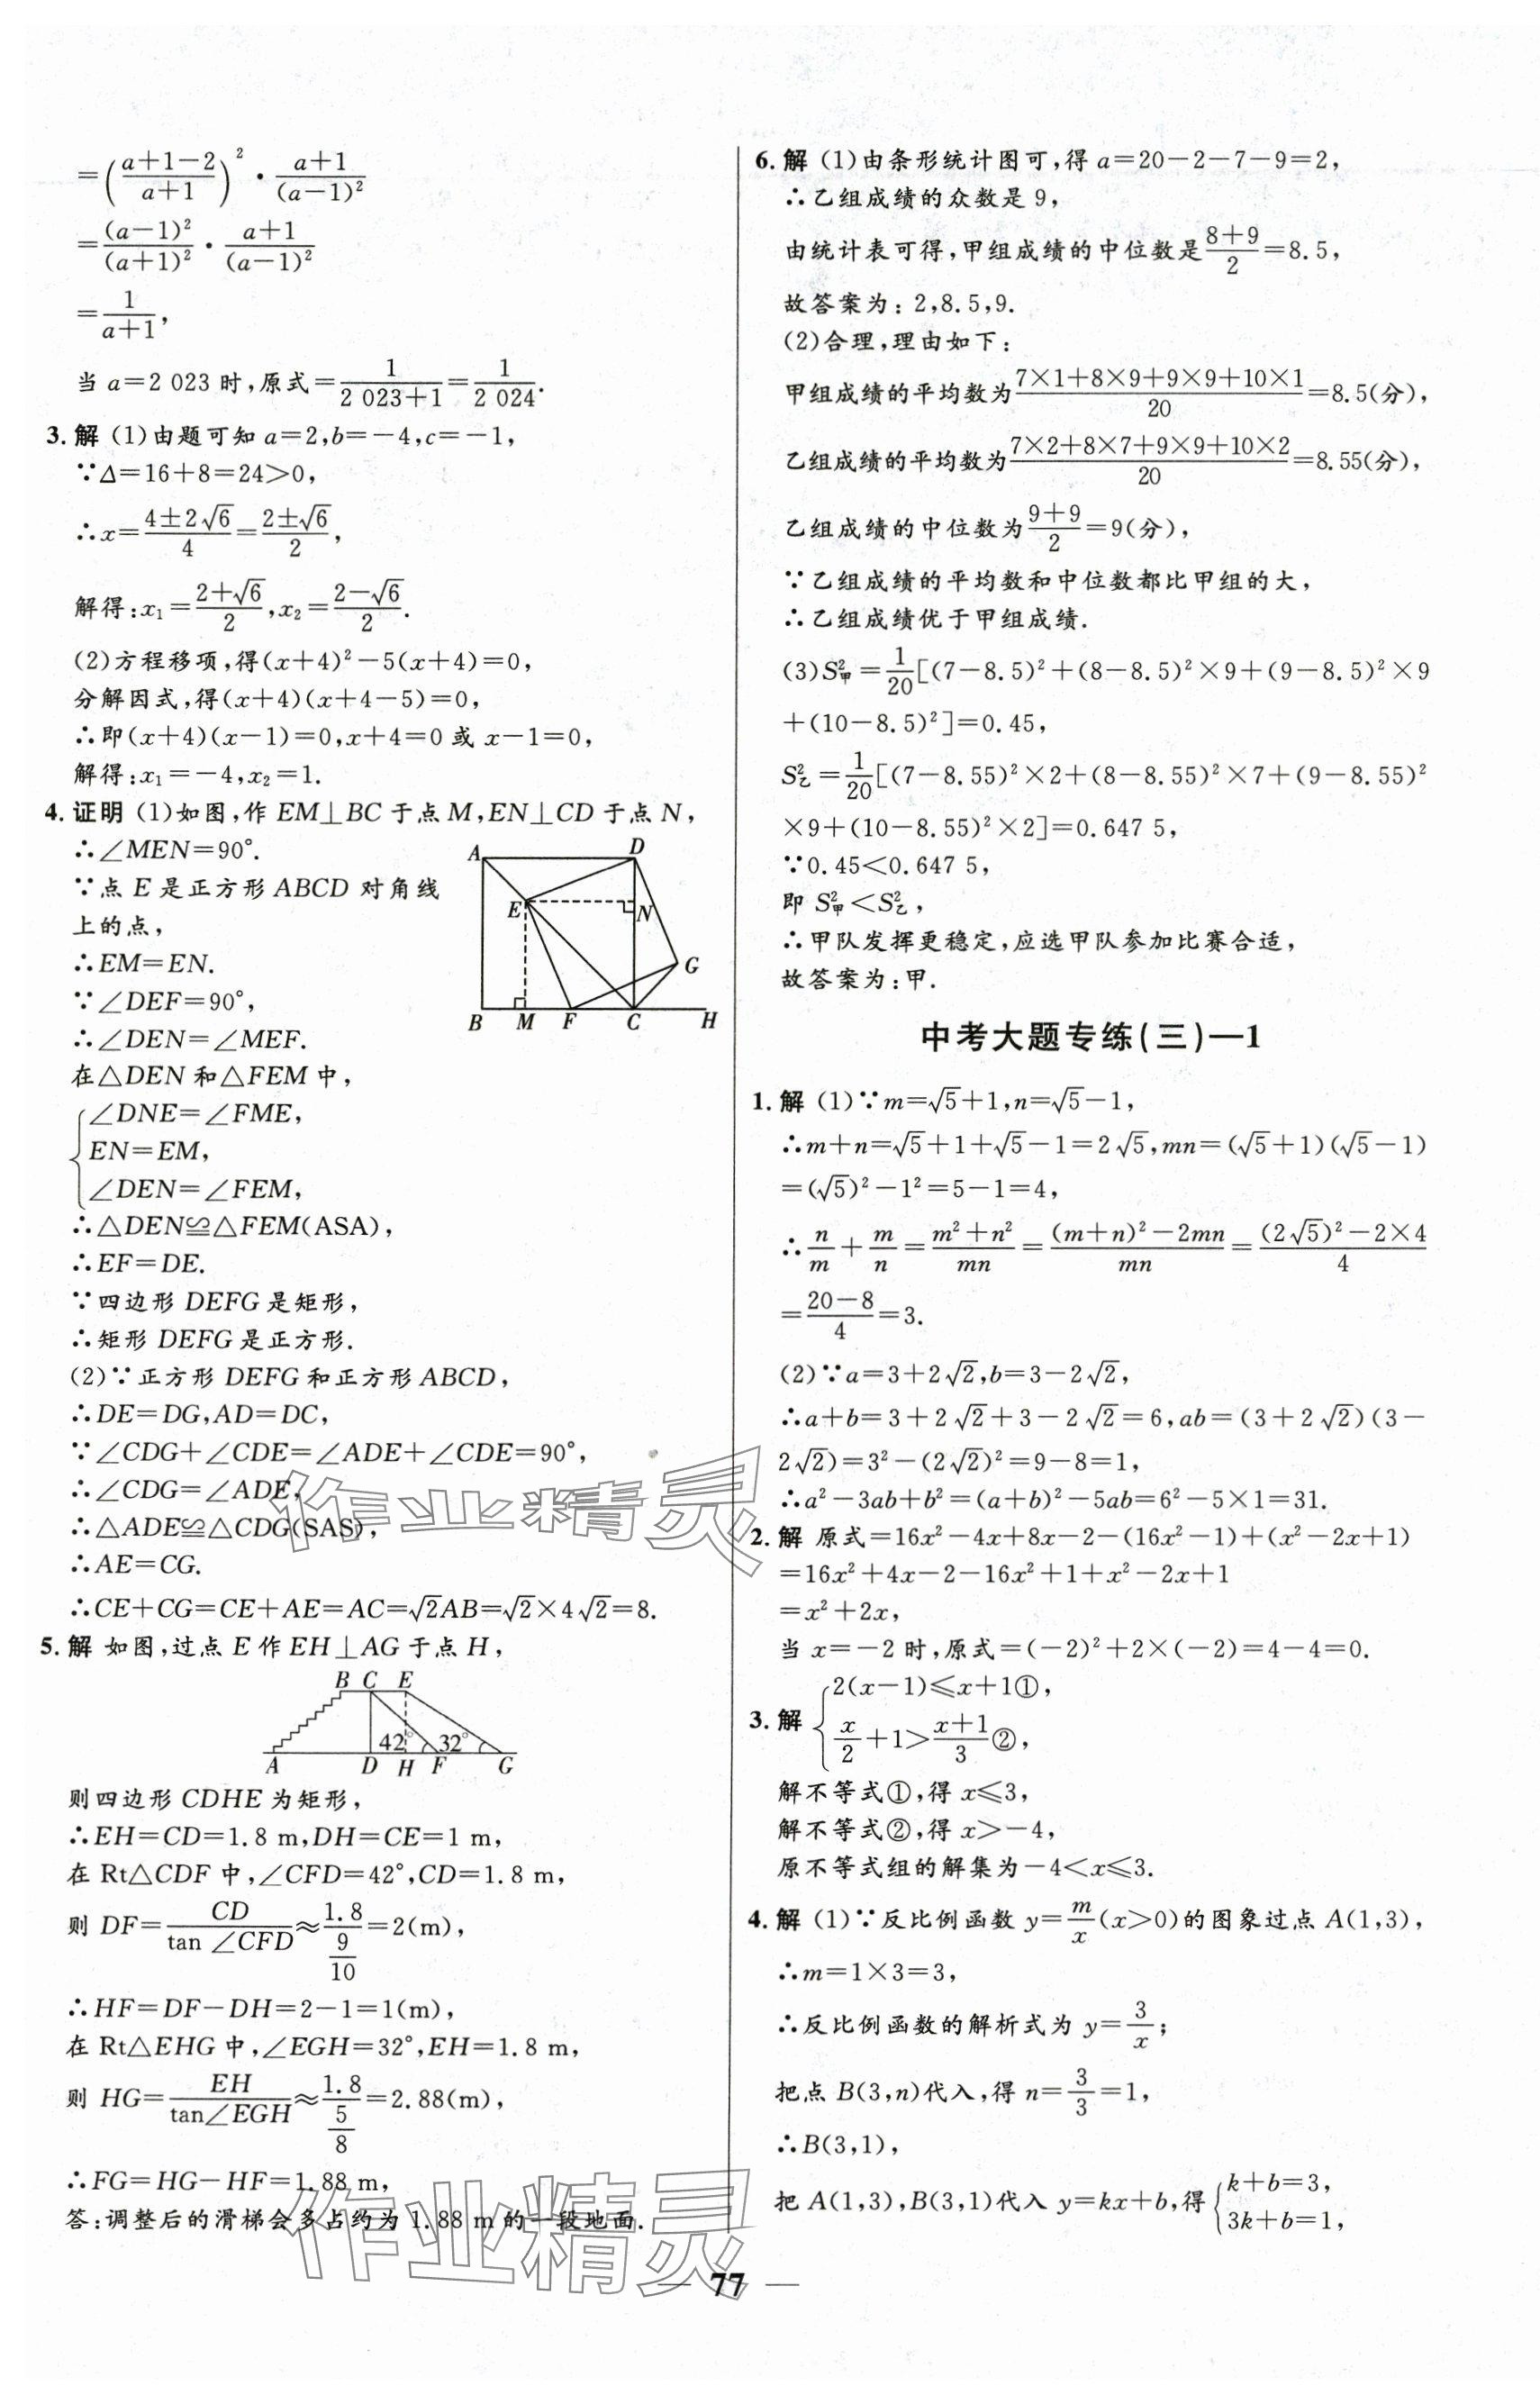 =((a+1-2)/(a+1))²·(a+1)/(a-1)²
=(a-1)²/(a+1)²·(a+1)/(a-1)²
=1/(a+1),
当 a=2 023 时,原式=1/(2 023+1)=1/2 024.
3. 解 (1)由题可知 a=2,b=-4,c=-1,
∵Δ=16+8=24>0,
∴x=(4±2√6)/4=(2±√6)/2,
解得:x₁=(2+√6)/2,x₂=(2-√6)/2.
(2)方程移项,得(x+4)²-5(x+4)=0,
分解因式,得(x+4)(x+4-5)=0,
∴即(x+4)(x-1)=0,x+4=0 或 x-1=0,
解得:x₁=-4,x₂=1.
4. 证明 (1)如图,作 EM⊥BC 于点 M,EN⊥CD 于点 N,
∴∠MEN=90°.
∵点 E 是正方形 ABCD 对角线
上的点,
∴EM=EN.
∵∠DEF=90°,
∴∠DEN=∠MEF.
在△DEN 和△FEM 中,
A D E N G B M F C H
{∠DNE=∠FME,
EN=EM,
∠DEN=∠FEM,
∴△DEN≌△FEM(ASA),
∴EF=DE.
∵四边形 DEFG 是矩形,
∴矩形 DEFG 是正方形.
(2)∵正方形 DEFG 和正方形 ABCD,
∴DE=DG,AD=DC,
∵∠CDG+∠CDE=∠ADE+∠CDE=90°,
∴∠CDG=∠ADE,
∴△ADE≌△CDG(SAS),
∴AE=CG.
∴CE+CG=CE+AE=AC=√2AB=√2×4√2=8.
5. 解 如图,过点 E 作 EH⊥AG 于点 H,
B C E
42° 32°
A D H F G
则四边形 CDHE 为矩形,
∴EH=CD=1.8 m,DH=CE=1 m,
在 Rt△CDF 中,∠CFD=42°,CD=1.8 m,
则 DF=CD/tan ∠CFD≈1.8/(9/10)=2(m),
∴HF=DF-DH=2-1=1(m),
在 Rt△EHG 中,∠EGH=32°,EH=1.8 m,
则 HG=EH/tan∠EGH≈1.8/(5/8)=2.88(m),
∴FG=HG-HF=1.88 m,
答:调整后的滑梯会多占约为 1.88 m 的一段地面.
6. 解 (1)由条形统计图可,得 a=20-2-7-9=2,
∴乙组成绩的众数是 9,
由统计表可得,甲组成绩的中位数是(8+9)/2=8.5,
故答案为:2,8.5,9.
(2)合理,理由如下:
甲组成绩的平均数为(7×1+8×9+9×9+10×1)/20=8.5(分),
乙组成绩的平均数为(7×2+8×7+9×9+10×2)/20=8.55(分),
乙组成绩的中位数为(9+9)/2=9(分),
∵乙组成绩的平均数和中位数都比甲组的大,
∴乙组成绩优于甲组成绩.
(3)S²甲=1/20[(7-8.5)²+(8-8.5)²×9+(9-8.5)²×9
+(10-8.5)²]=0.45,
S²乙=1/20[(7-8.55)²×2+(8-8.55)²×7+(9-8.55)²
×9+(10-8.55)²×2]=0.647 5,
∵0.45<0.647 5,
即 S²甲<S²乙,
∴甲队发挥更稳定,应选甲队参加比赛合适,
故答案为:甲.
中考大题专练(三)—1
1. 解 (1)∵m=√5+1,n=√5-1,
∴m+n=√5+1+√5-1=2√5,mn=(√5+1)(√5-1)
=(√5)²-1²=5-1=4,
∴n/m+m/n=(m²+n²)/mn=((m+n)²-2mn)/mn=((2√5)²-2×4)/4
=(20-8)/4=3.
(2)∵a=3+2√2,b=3-2√2,
∴a+b=3+2√2+3-2√2=6,ab=(3+2√2)(3-
2√2)=3²-(2√2)²=9-8=1,
∴a²-3ab+b²=(a+b)²-5ab=6²-5×1=31.
2. 解 原式=16x²-4x+8x-2-(16x²-1)+(x²-2x+1)
=16x²+4x-2-16x²+1+x²-2x+1
=x²+2x,
当 x=-2 时,原式=(-2)²+2×(-2)=4-4=0.
3. 解 {2(x-1)≤x+1①,
x/2+1>(x+1)/3②,
解不等式①,得 x≤3,
解不等式②,得 x>-4,
原不等式组的解集为-4<x≤3.
4. 解 (1)∵反比例函数 y=m/x(x>0)的图象过点 A(1,3),
∴m=1×3=3,
∴反比例函数的解析式为 y=3/x;
把点 B(3,n)代入,得 n=3/3=1,
∴B(3,1),
把 A(1,3),B(3,1)代入 y=kx+b,得{k+b=3,
3k+b=1,
作业精灵
作业精灵
77 —